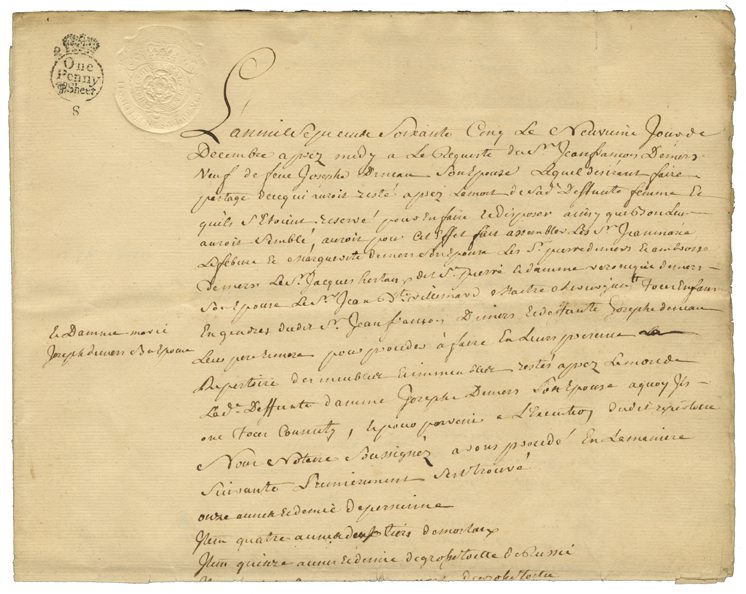 One
Penny
℔ Sheet
8
L'an mil Sept cent Soixante Cinq Le Neuvieme Jour de
Decembre apres midy a La Requeste du Sr. Jean francois Demers
Veuf de feue Josephe Deneau Son Epouse Lequel desirant faire
partage de ce qui auroit resté apres La mort de Sad. Deffunte femme Et
quils S'Etoient reservé pour En faire Et disposer ainsy que bon Leur
auroit Semblé, auroit pour Cet Effet fait assembler Les Sr. Jean marie
Lefebvre Et marguerite demers Son Epouse Les Sr. pierre demers Et ambroise
demers Le Sr. Jacques de St. pierre Et damme veronique demers
Son Epouse Le Sr. Jean Maitre Tous Enfans
Et gendres dudit Sr. Jean francois Demers Et deffunte Josephe deneau
Leurs pere Et mere pour proceder a faire En Leurs presence
Repertoire des meubles Et immeubles restés apres La mort de
Lad. Deffunte damme Josephe Demers Son Epouse a quoy Ils
ont Tous Consenty, Et pour parvenir a L'Execution dudit repertoire
Nous Notaire Soussignéz avons procedé En La maniere
Suivante Premierement S'est trouvé
onze aunes Et demie de persienne
Item quatre aunes deux tiers de
Item quinze aunes Et demie de grosse toille de Russi
de grosse toille
La Damme marie
Josephe demers Son Epouse